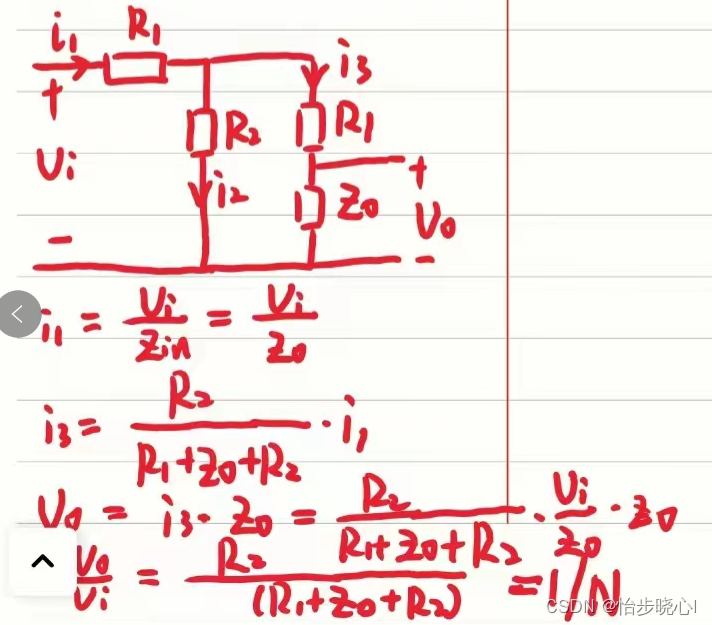 i₁ R₁
i₃
+ R₂ R₁
Ui i₂ +
Z₀ U₀
- -
i₁ = Ui/Zin = Ui/Z₀
i₃ = R₂/(R₁+Z₀+R₂) · i₁
U₀ = i₃ · Z₀ = R₂/(R₁+Z₀+R₂) · Ui/Z₀ · Z₀
U₀/Ui = R₂/(R₁+Z₀+R₂) = 1/N
CSDN @怡步晓心l